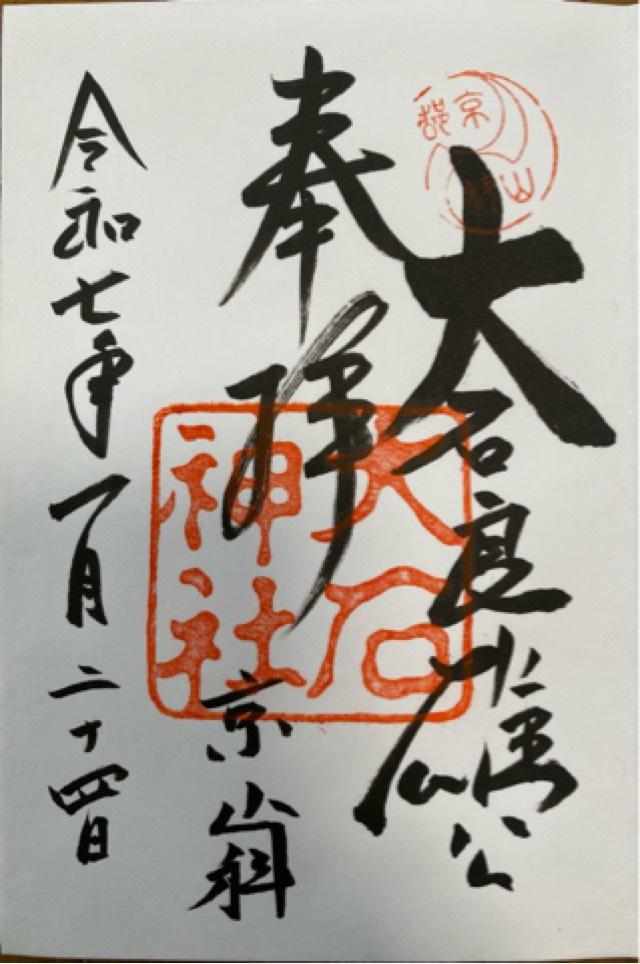 大石良雄公
奉拝
京山科
令和七年一月二十四日
大石
神社